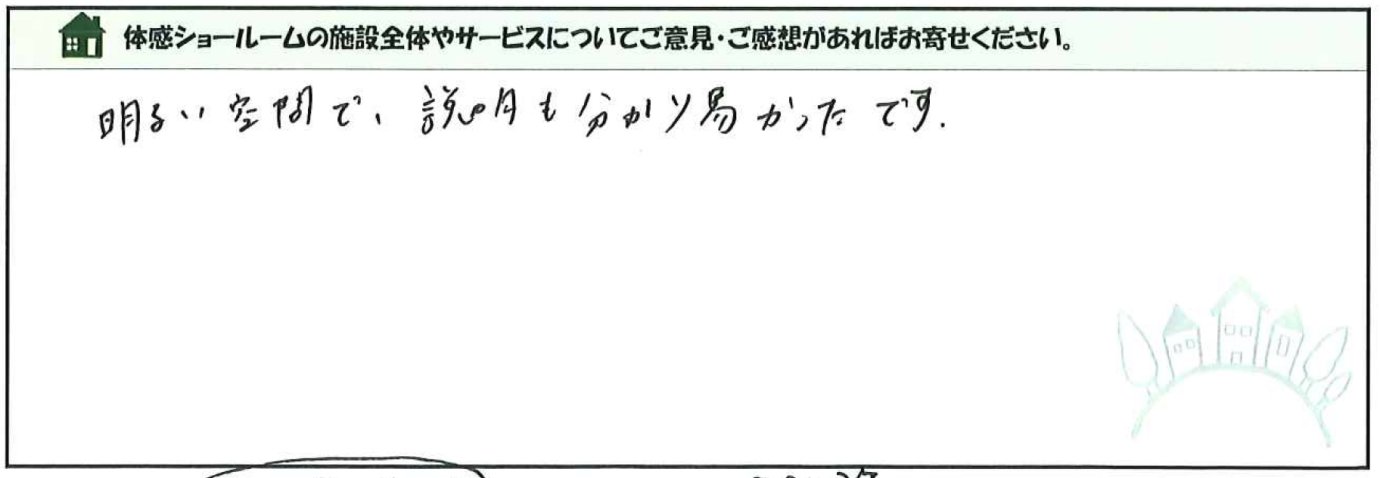 体感ショールームの施設全体やサービスについてご意見・ご感想があればお寄せください。
明るい空間で、説明も分かり易かったです.